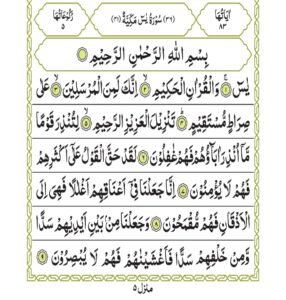 اٰیَاتُهَا ٨٣
(٣٦) سُوْرَةُ یٰسٓ مَكِّیَّةٌ (٤١)
رُكُوْعَاتُهَا ٥
بِسْمِ اللّٰهِ الرَّحْمٰنِ الرَّحِیْمِ
یٰسٓ ۝١ وَالْقُرْاٰنِ الْحَكِیْمِ ۝٢ اِنَّكَ لَمِنَ الْمُرْسَلِیْنَ ۝٣ عَلٰی
صِرَاطٍ مُّسْتَقِیْمٍ ۝٤ تَنْزِیْلَ الْعَزِیْزِ الرَّحِیْمِ ۝٥ لِتُنْذِرَ قَوْمًا
مَّاۤ اُنْذِرَ اٰبَآؤُهُمْ فَهُمْ غٰفِلُوْنَ ۝٦ لَقَدْ حَقَّ الْقَوْلُ عَلٰۤی اَكْثَرِهِمْ
فَهُمْ لَا یُؤْمِنُوْنَ ۝٧ اِنَّا جَعَلْنَا فِیْۤ اَعْنَاقِهِمْ اَغْلٰلًا فَهِیَ اِلَی
الْاَذْقَانِ فَهُمْ مُّقْمَحُوْنَ ۝٨ وَجَعَلْنَا مِنْۢ بَیْنِ اَیْدِیْهِمْ سَدًّا
وَّمِنْ خَلْفِهِمْ سَدًّا فَاَغْشَیْنٰهُمْ فَهُمْ لَا یُبْصِرُوْنَ ۝٩
منزل ٥